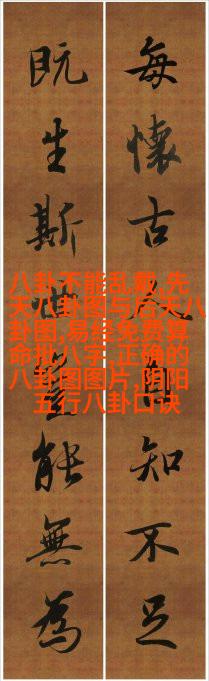 每懷古知不足
既生斯能無為
八卦不能乱戴,先
天八卦图与后天八
卦图,易经免费算
命批八字,正确的
八卦图图片,阴阳
五行八卦口诀